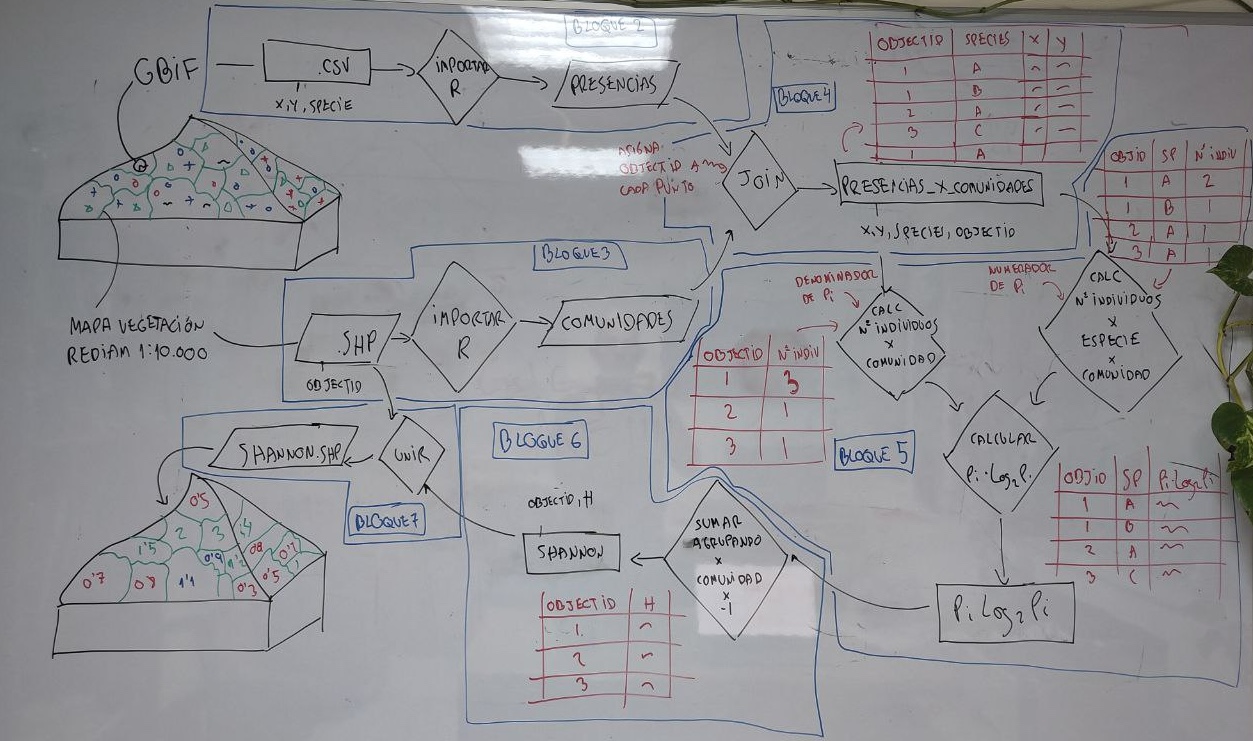 GBIF
.CSV
X,Y, SPECIE
IMPORTAR
R
PRESENCIAS
BLOQUE 2
BLOQUE 4
OBJECTID SPECIES X Y
1 A ~ ~
1 B ~ ~
2 A ~ ~
3 C ~ ~
1 A
ASIGNA
OBJECTID A
CADA PUNTO
JOIN
PRESENCIAS_X_COMUNIDADES
X,Y, SPECIES, OBJECTID
OBJID SP Nº INDIV
1 A 2
1 B 1
2 A 1
3 A 1
MAPA VEGETACIÓN
REDIAM 1:10.000
BLOQUE 3
.SHP
OBJECTID
IMPORTAR
R
COMUNIDADES
DENOMINADOR
DE Pi
CALC
Nº INDIVIDUOS
X
COMUNIDAD
NUMERADOR
DE Pi
CALC
Nº INDIVIDUOS
X
ESPECIE
X
COMUNIDAD
OBJECTID Nº INDIV
1 3
2 1
3 1
BLOQUE 5
CALCULAR
Pi·Log₂Pi
OBJID SP Pi·Log₂Pi
1 A ~
1 B ~
2 A ~
3 C ~
Pi Log₂ Pi
BLOQUE 6
SUMAR
AGRUPANDO
X
COMUNIDAD
X
-1
OBJECTID, H
SHANNON
OBJECTID H
1. ~
2 ~
3 ~
UNIR
SHANNON.SHP
BLOQUE 7
0'5
1'5 2 3
0'7 0'8 1'1 0'9 0'3 0'5